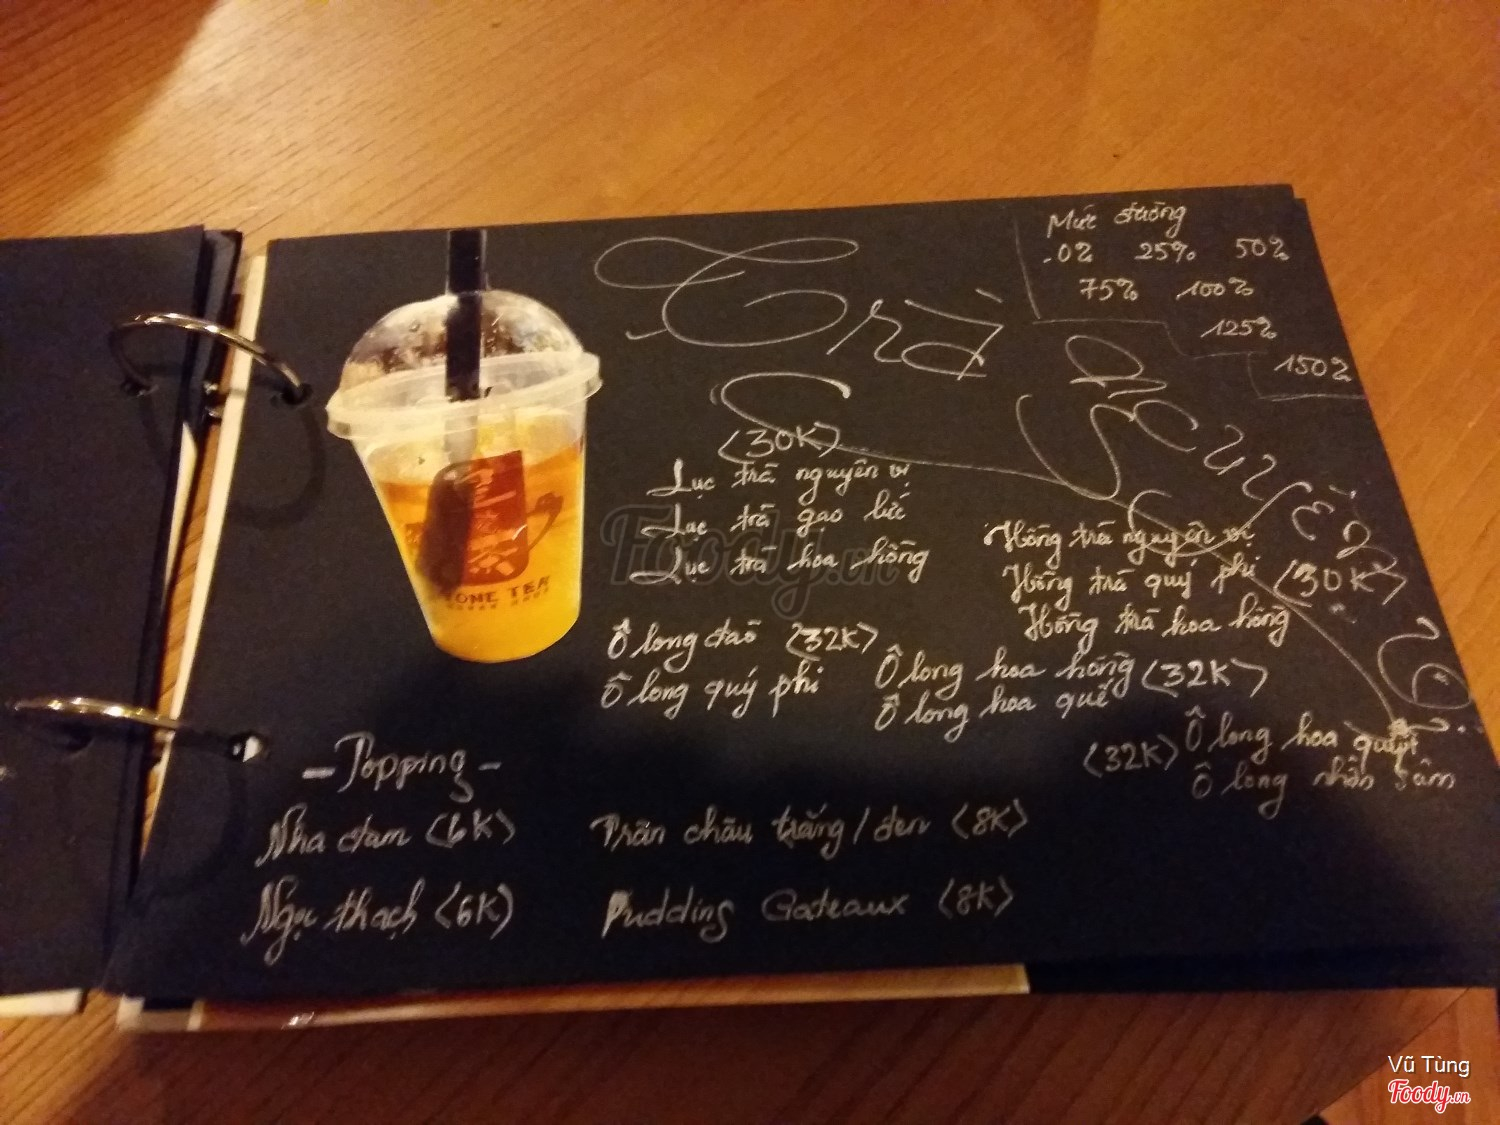 Mức đường
0% 25% 50%
75% 100%
125%
150%
Trà
(30K)
Lục trà nguyên vị
Lục trà gạo lức
Lục trà hoa hồng
Hồng trà nguyên vị
Hồng trà quý phi (30K)
Hồng trà hoa hồng
Ô long đào (32K)
Ô long quý phi
Ô long hoa hồng (32K)
Ô long hoa quế
(32K) Ô long hoa
Ô long nhân sâm
- Topping -
Nha đam (6K) Trân châu trắng/đen (8K)
Ngọc thạch (6K) Pudding Gateaux (8K)
TONE TEA
Foody.vn
Vũ Tùng
Foody.vn